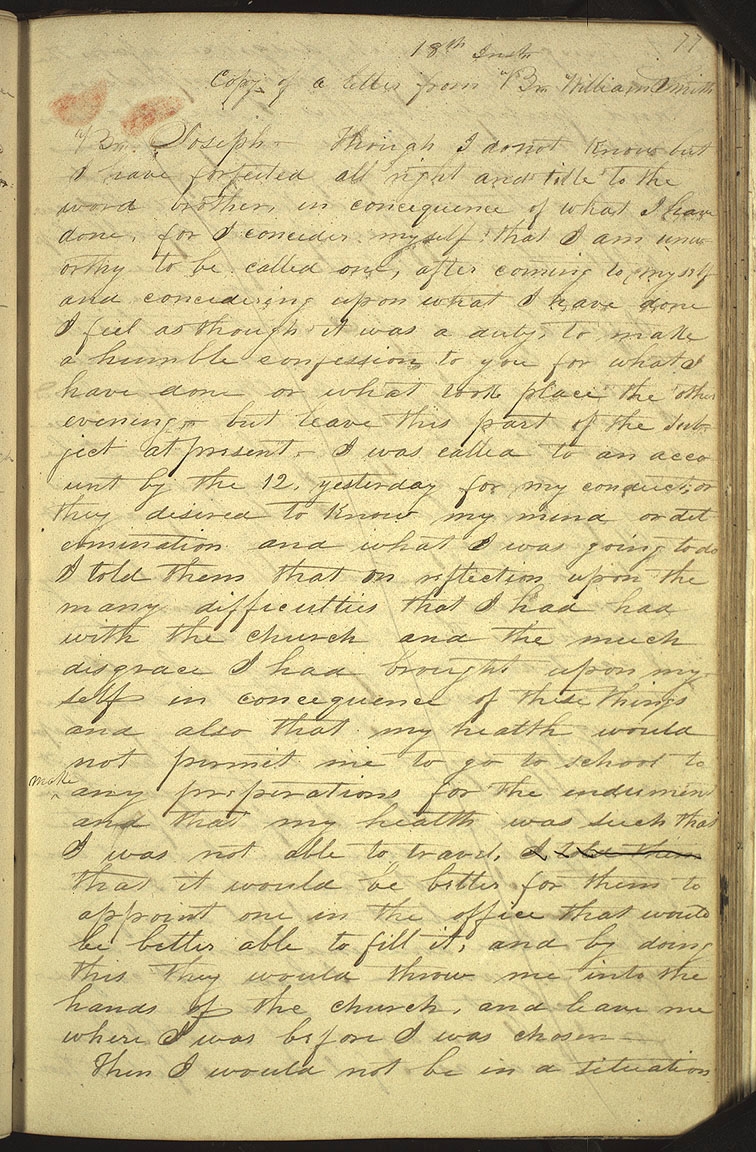 77
18th Inst
Copy of a letter from Br. William Smith
Br. Joseph— Though I donot know but
I have forfeited all right and title to the
word brother, in concequence of what I have
done, for I concider myself that I am unw
orthy to be called one, after coming to myself
and concidering upon what I have done
I feel as though it was a duty, to make
a humble confession to you for what I
have done or what took place the other
evening,— but leave this part of the sub-
ject at present— I was called to an acco
unt by the 12. yesterday for my conduct; or
they desired to know my mind or det
ermination and what I was going to do
I told them that on reflection upon the
many difficulties that I had had
with the church and the much
disgrace I had brought upon my-
self in concequence of these things
and also that my health would
not permit me to go to school to
make any preperations for the endument
and that my health was such that
I was not able to travel, I told them
that it would be better for them to
appoint one in the office that would
be better able to fill it, and by doing
this they would throw me into the
hands of the church, and leave me
where I was before I was chosen—
Then I would not be in a situation